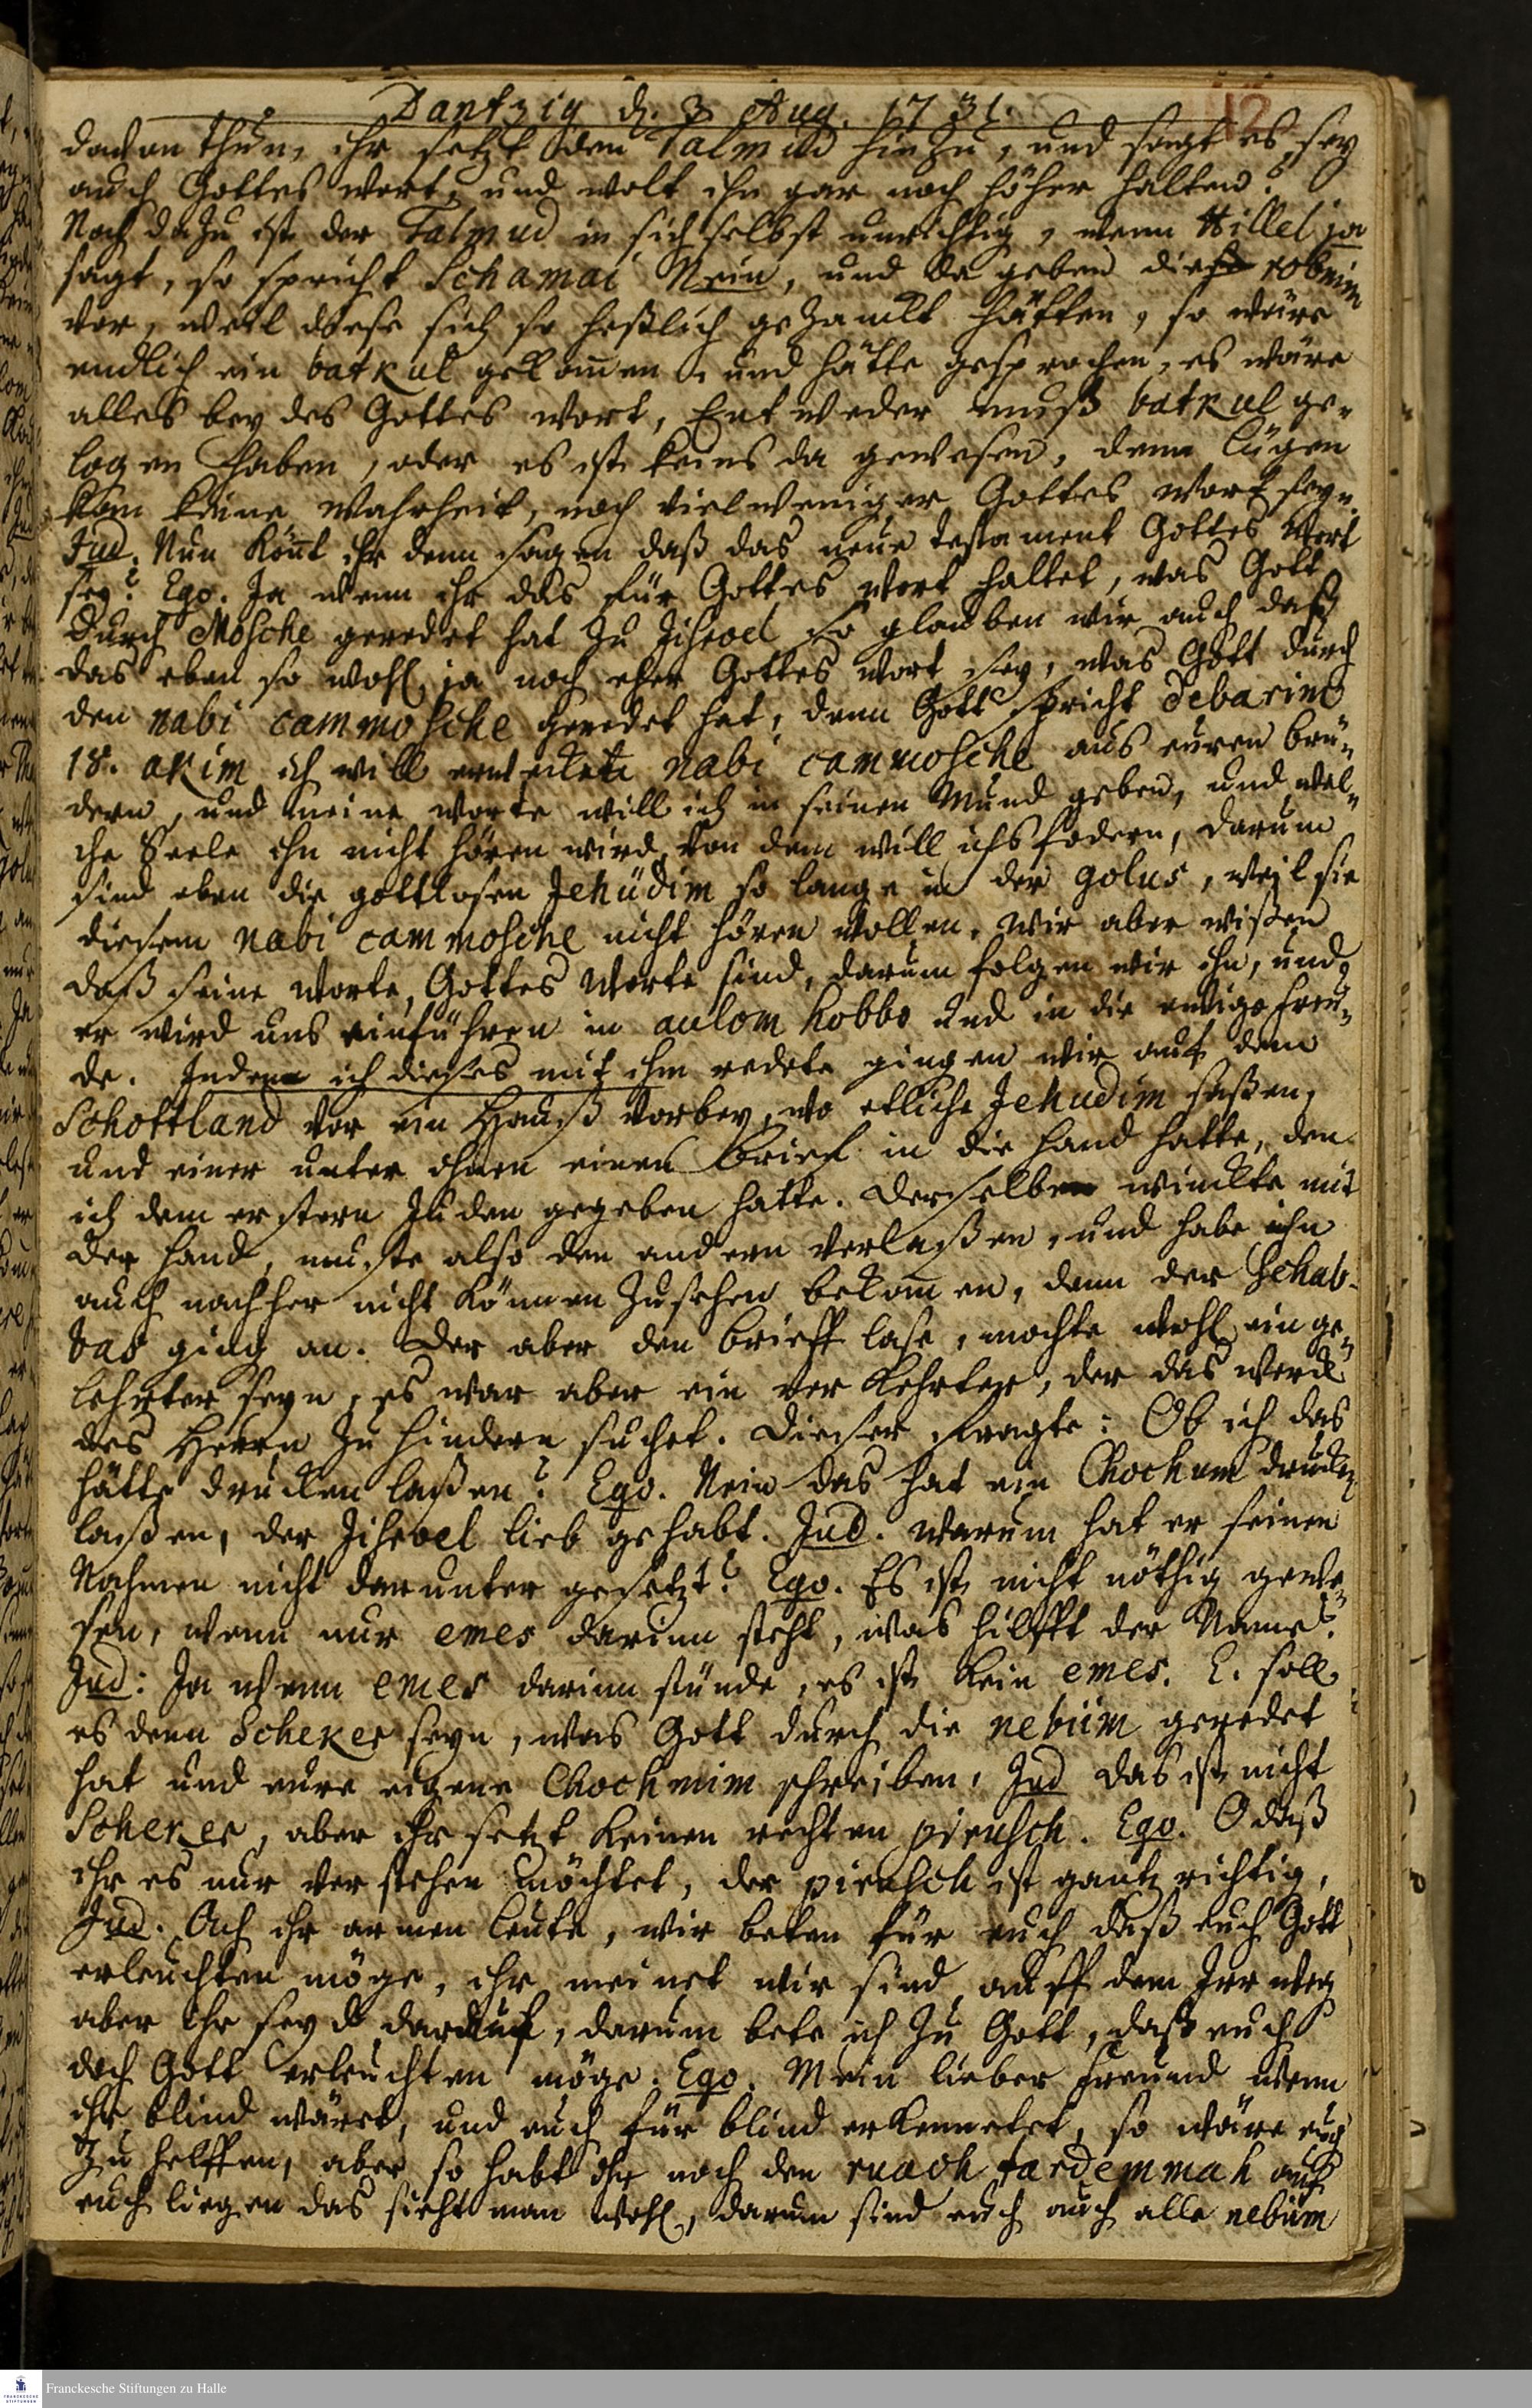 Dantzig d. 3 Aug. 1731.
12
davon thun, ihr setzt den Talmud hinzu, und sagt es sey
auch Gottes wort, und wolt ihn gar noch höher halten?
Noch dazu ist der Talmud in sich selbst unrichtig, wenn Hillel ja
sagt, so spricht Schamai Nein, und da geben die robnim
vor, weil diese sich so heßlich gezanckt hätten, so wäre
endlich ein batkul gekom̄en, und hätte gesprochen, es wäre
alles beydes Gottes wort, Entweder muß batkul ge-
logen haben, oder es ist keins da gewesen, denn lügen
kan keine Wahrheit, noch vielweniger Gottes wort seyn.
Jud. Nun kön̄t ihr denn sagen daß das neue testament Gottes Wort
sey? Ego. Ja wenn ihr das für Gottes wort haltet, was Gott
durch Mosche geredet hat zu Jisroel so glauben wir auch daß
das eben so wohl, ja noch eher Gottes wort sey, was Gott durch
den nabi cammosche geredet hat, denn Gott spricht debarim
18. akim ich will erwecken nabi cammosche aus euren brü-
dern, und meine worte will ich in seinen Mund geben, und wel-
che Seele ihn nicht hören wird, von dem will ichs fodern, darum
sind eben die gottlosen Jehüdim so lange in der golus, weil sie
diesem nabi cammosche nicht hören wollen, wir aber wißen
daß seine worte, Gottes Worte sind, darum folgen wir ihn, und
er wird uns einführen in aulom habbo und in die ewige freu-
de. Indem ich dieses mit ihm redete gingen wir auf dem
Schottland vor ein Hauß vorbey, wo etliche Jehudim saßen,
und einer unter ihnen einen brief in die hand hatte, den
ich dem erstern Juden gegeben hatte. Derselbe winckte mit
der hand, muste also den andern verlaßen, und habe ihn
auch nachher nicht können zusehen bekom̄en, denn der Schab-
bas ging an. Der aber den brieff lase, mochte wohl ein ge-
lehrter seyn, es war aber ein verkehrter, der das werck
des Herrn zu hindern suchet. Dieser fragte: Ob ich das
hätte drucken laßen? Ego. Nein das hat ein Chochum drucken
laßen, der Jisroel lieb gehabt. Jud. warum hat er seinen
Nahmen nicht darunter gesetzt? Ego. Es ist nicht nöthig gewe-
sen, wenn nur emes darinn steht, was hilfft der Name?
Jud: Ja wenn emes darinn stünde, es ist kein emes. E. soll
es denn Scheker seyn, was Gott durch die nebiim geredet
hat und eure eigene Chochmim schreiben, Jud das ist nicht
Scheker, aber ihr setzt keinen rechten pirusch. Ego. O daß
ihr es nur verstehen möchtet, der pirusch ist gantz richtig,
Jud. Ach ihr armen leute, wir beten für euch daß euch Gott
erleuchten möge, ihr meinet wir sind auff dem Irrweg
aber ihr seyd darauf, darum bete ich zu Gott, daß euch
doch Gott erleuchten möge. Ego. Mein lieber freund wenn
ihr blind wäret, und euch für blind erkennetet, so wäre euch
zu helffen, aber so habt ihr noch den ruach tardemmah auf
euch liegen das sieht man wohl, darum sind euch auch alle nebiim
Franckesche Stiftungen zu Halle